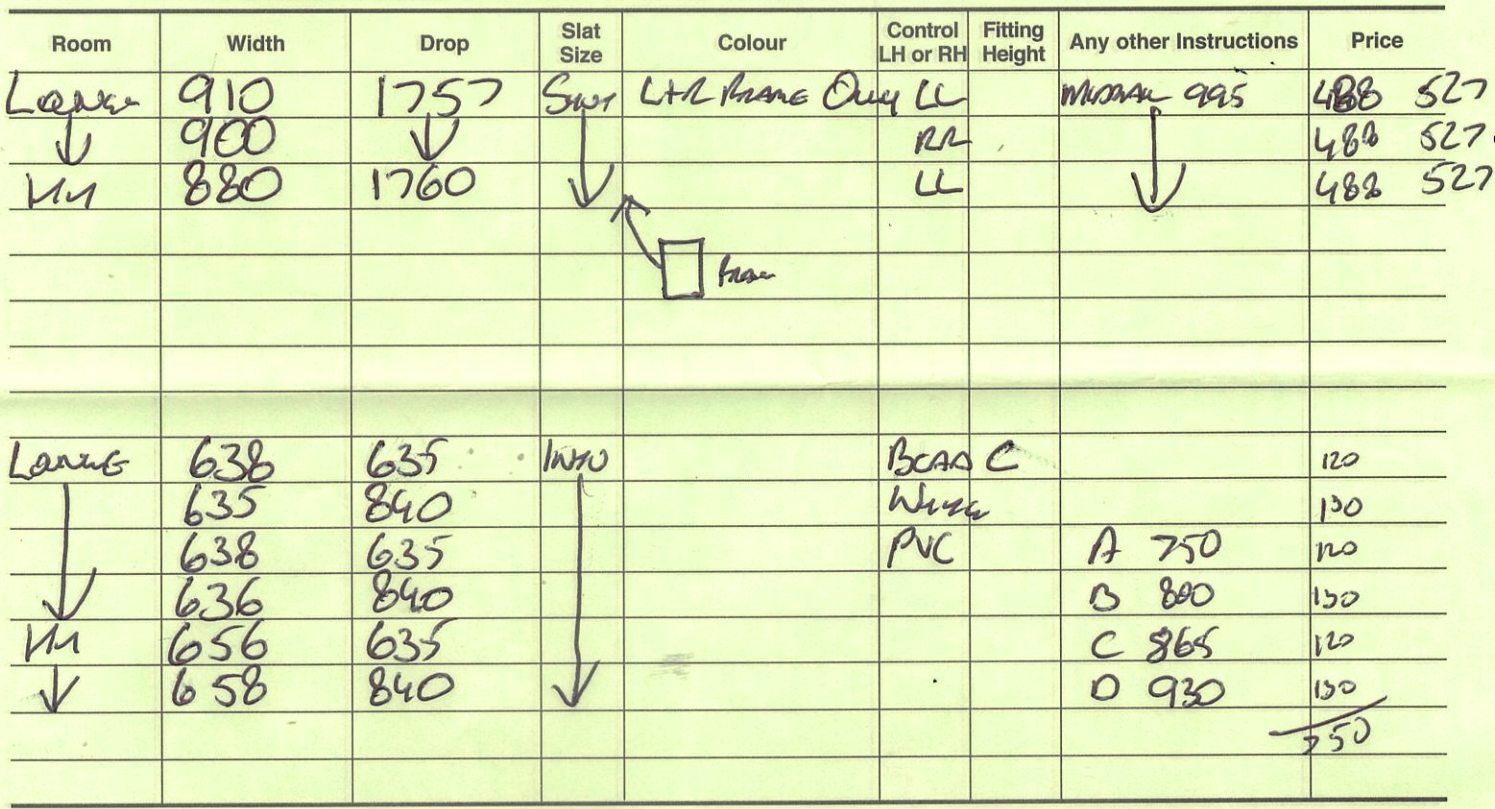 Room Width Drop Slat Size Colour Control LH or RH Fitting Height Any other Instructions Price
Lounge 910 1757 L+R Frame Only LL Midrail 995 488 527
900 RR 488 527
880 1760 LL 488 527
Frame
Lounge 638 635 120
635 840 130
638 635 PVC A 750 120
636 840 B 800 130
656 635 C 865 120
658 840 D 930 130
750